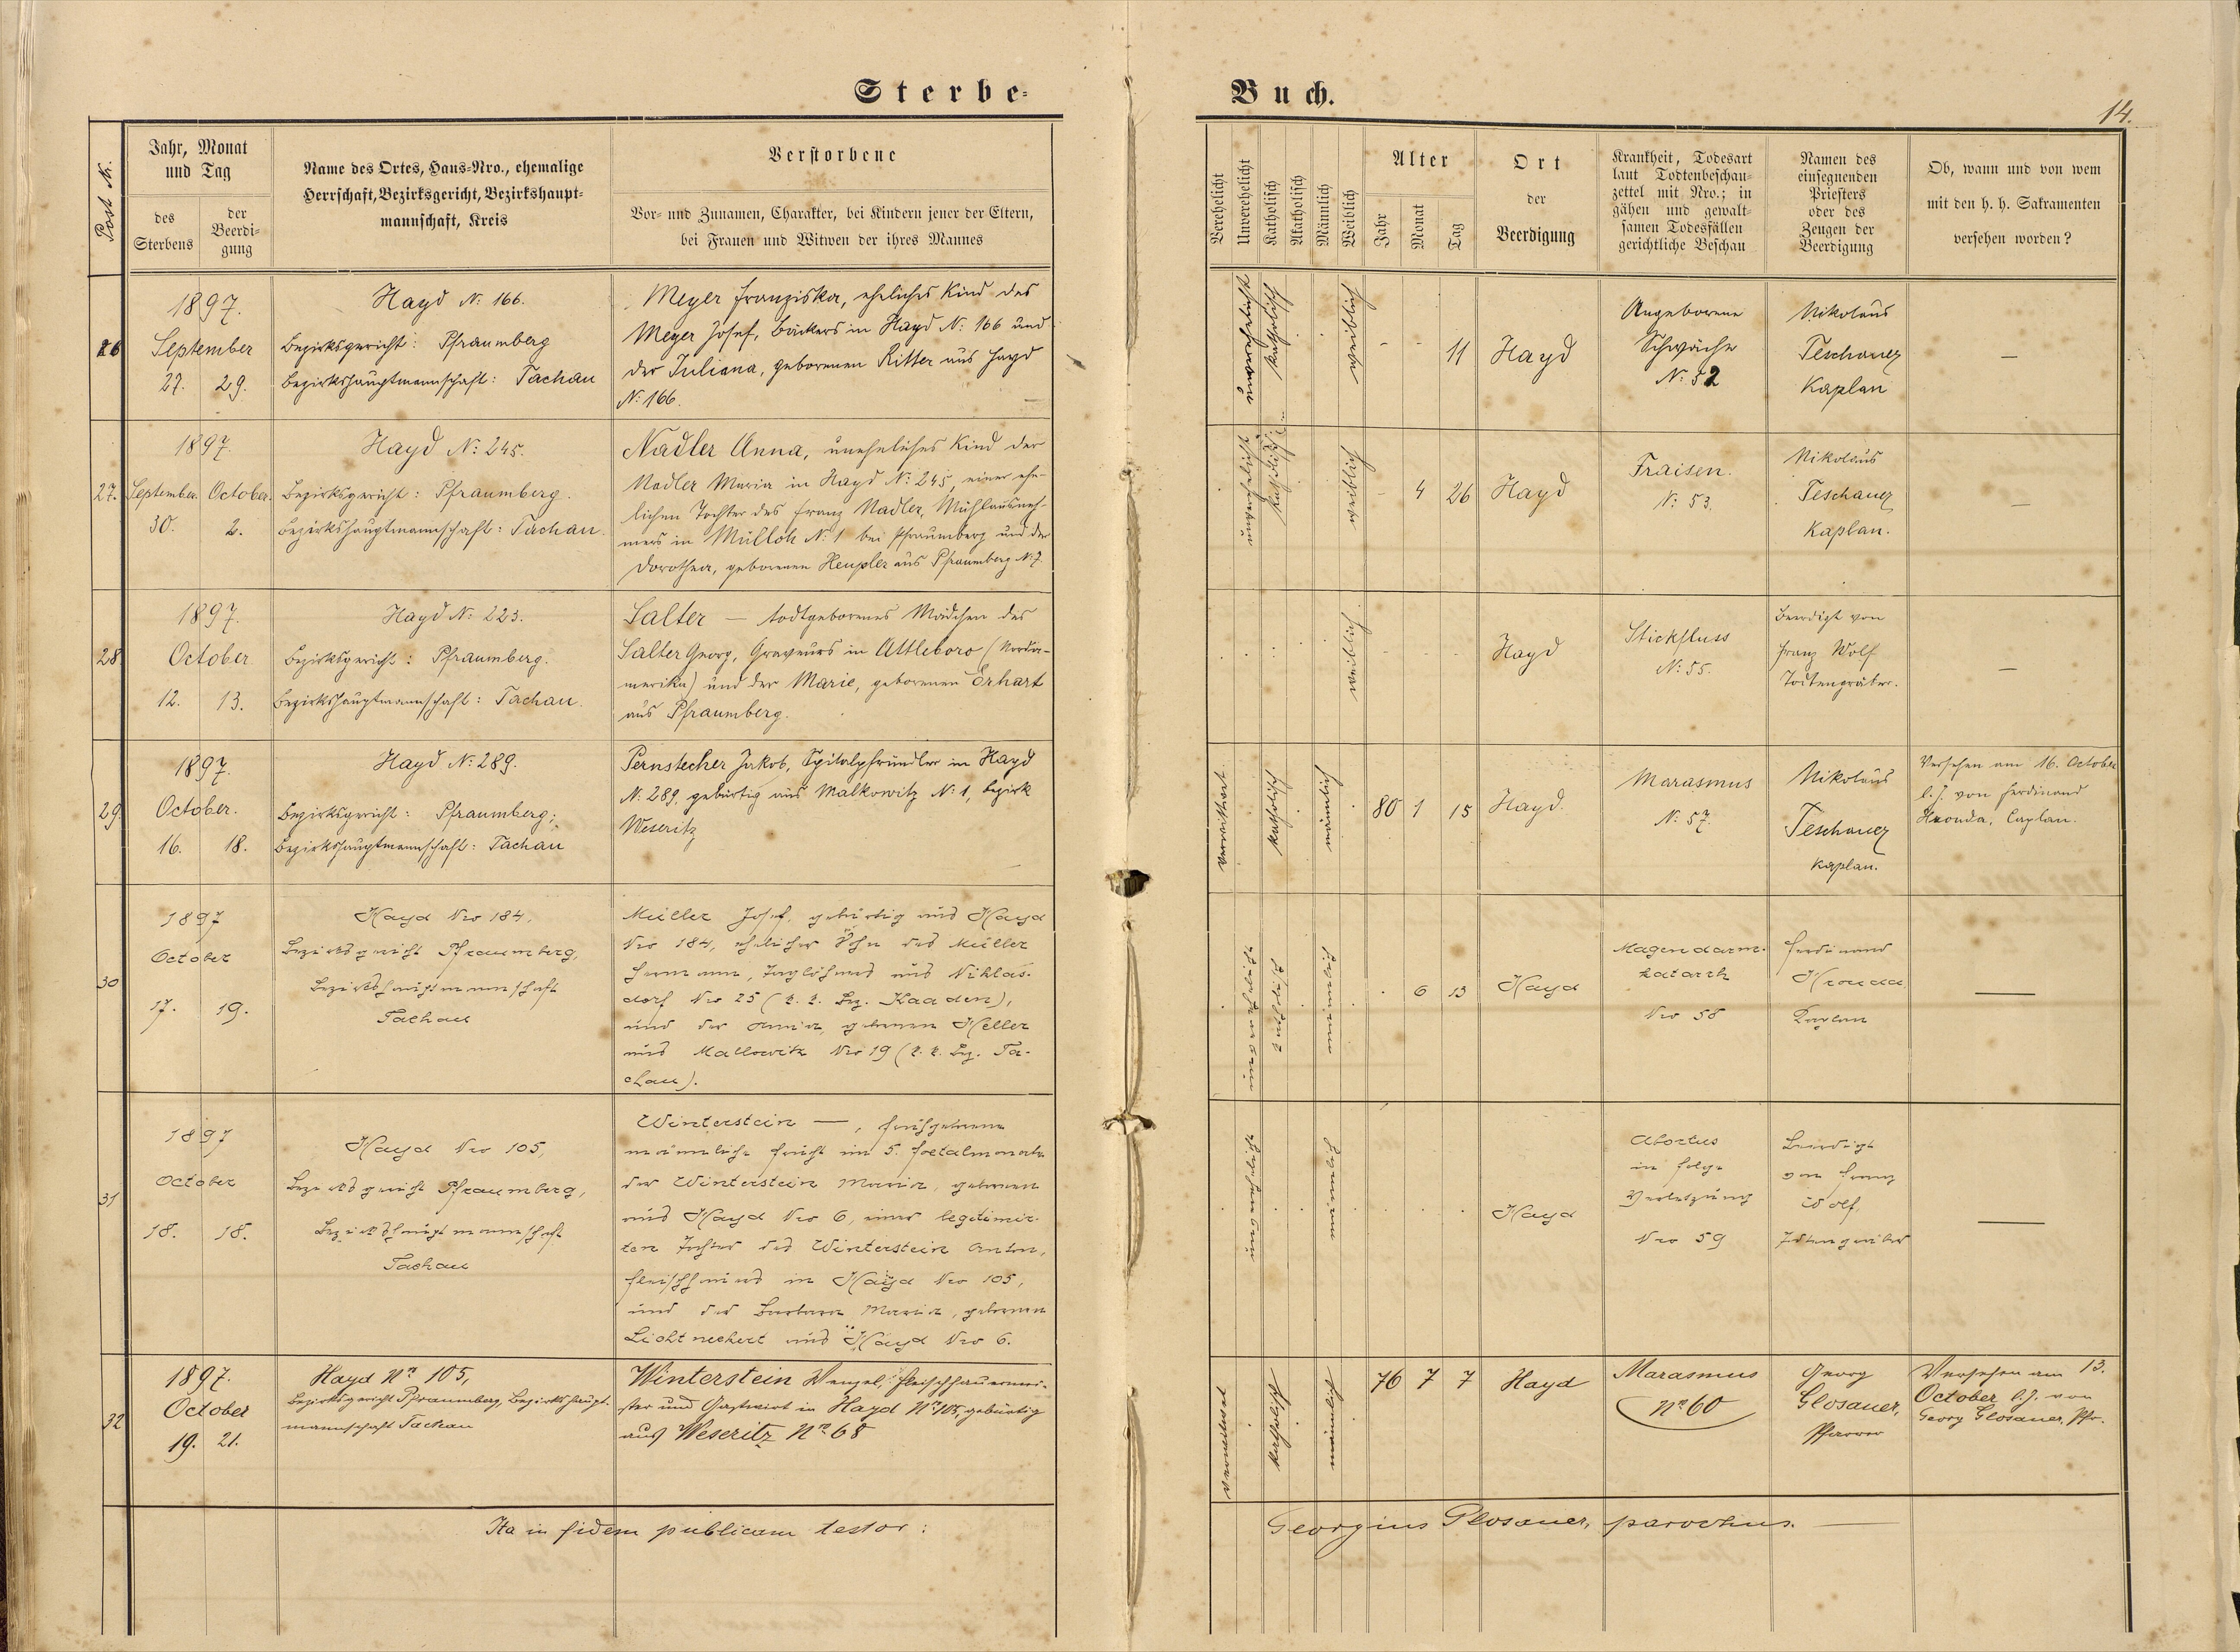 Sterbe-
Buch.
14.
Post Nr.
Jahr, Monat
und Tag
des
Sterbens
der
Beerdi-
gung
Name des Ortes, Haus-Nro., ehemalige
Herrschaft, Bezirksgericht, Bezirkshaupt-
mannschaft, Kreis
Verstorbene
Vor- und Zunamen, Charakter, bei Kindern jener der Eltern,
bei Frauen und Witwen der ihres Mannes
Verehelicht
Unverehelicht
Katholisch
Akatholisch
Männlich
Weiblich
Alter
Jahr
Monat
Tag
Ort
der
Beerdigung
Krankheit, Todesart
laut Todtenbeschau-
zettel mit Nro.; in
gähen und gewalt-
samen Todesfällen
gerichtliche Beschau
Namen des
einsegnenden
Priesters
oder des
Zeugen der
Beerdigung
Ob, wann und von wem
mit den h. h. Sakramenten
versehen worden?
26
1897.
September
27. 29.
Hayd N: 166.
Bezirksgericht: Pfraumberg
Bezirkshauptmannschaft: Tachau
Meyer Franziska, eheliches Kind des
Meyer Josef, Bäckers in Hayd N: 166 und
der Juliana, geborenen Ritter aus Hayd
N: 166.
unverehelicht
katholisch
weiblich
- - 11
Hayd
Angeborene
Schwäche
N: 52
Nikolaus
Teschauer
Kaplan
—
27.
1897.
September. October.
30. 2.
Hayd N: 245.
Bezirksgericht: Pfraumberg.
Bezirkshauptmannschaft: Tachau.
Nadler Anna, uneheliches Kind der
Nadler Maria in Hayd N: 245, einer ehe-
lichen Tochter des Franz Nadler, Mühlausneh-
mers in Mülloh N: 1 bei Pfraumberg und der
Dorothea, geborenen Heupler aus Pfraumberg N: 7.
unverehelicht
katholisch
weiblich
4 26
Hayd
Fraisen.
N: 53.
Nikolaus
Teschauer
Kaplan.
—
28
1897.
October
12. 13.
Hayd N: 223.
Bezirksgericht: Pfraumberg.
Bezirkshauptmannschaft: Tachau.
Salter — todtgeborenes Mädchen des
Salter Georg, Graveurs in Attleboro (Norda-
merika) und der Marie, geborenen Erhart
aus Pfraumberg.
weiblich
Hayd
Stickfluss
N: 55.
Beerdigt von
Franz Wolf
Todtengräber.
—
29
1897.
October.
16. 18.
Hayd N: 289.
Bezirksgericht: Pfraumberg;
Bezirkshauptmannschaft: Tachau
Pernstecher Jakob, Spitalpfründler in Hayd
N: 289, gebürtig aus Malkowitz N: 1, Bezirk
Weseritz
verwitwet
katholisch
männlich
80 1 15
Hayd.
Marasmus
N: 57.
Nikolaus
Teschauer
Kaplan.
Versehen am 16. October
l. J. von Ferdinand
Hronda, Caplan.
30
1897
October
17. 19.
Hayd Nro 184,
Bezirksgericht Pfraumberg,
Bezirkshauptmannschaft
Tachau
Müller Josef, gebürtig aus Hayd
Nro 184, ehelicher Sohn des Müller
Hermann, Taglöhners aus Niklas-
dorf Nro 25 (k. k. Bez. Kaaden),
und der Anna, gebornen Heller
aus Mallowitz Nro 19 (k. k. Bez. Ta-
chau).
unverehelicht
katholisch
männlich
6 13
Hayd
Magendarm-
katarrh
Nro 58
Ferdinand
Hronda
Kaplan
—
31
1897
October
18. 18.
Hayd Nro 105,
Bezirksgericht Pfraumberg,
Bezirkshauptmannschaft
Tachau
Winterstein —, frühgeborene
männliche Frucht im 5. Foetalmonate
der Winterstein Maria, gebornen
aus Hayd Nro 6, einer legitimir-
ten Tochter des Winterstein Anton,
Fleischhauers in Hayd Nro 105,
und der Barbara Maria, gebornen
Lichtneckert aus Hayd Nro 6.
unverehelicht
männlich
Hayd
Abortus
in Folge
Verletzung
Nro 59
Beerdigt
von Franz
Wolf,
Todtengräber
—
32
1897.
October
19. 21.
Hayd Nro 105,
Bezirksgericht Pfraumberg, Bezirkshaupt-
mannschaft Tachau
Winterstein Wenzel, Fleischhauermei-
ster und Gastwirt in Hayd Nro 105, gebürtig
aus Weseritz Nro 68
verwitwet
katholisch
männlich
76 7 7
Hayd
Marasmus
Nro 60
Georg
Glosauer,
Pfarrer
Versehen am 13.
October l. J. von
Georg Glosauer, Pfr.
Ita in fidem publicam testor:
Georgius Glosauer, parochus. —